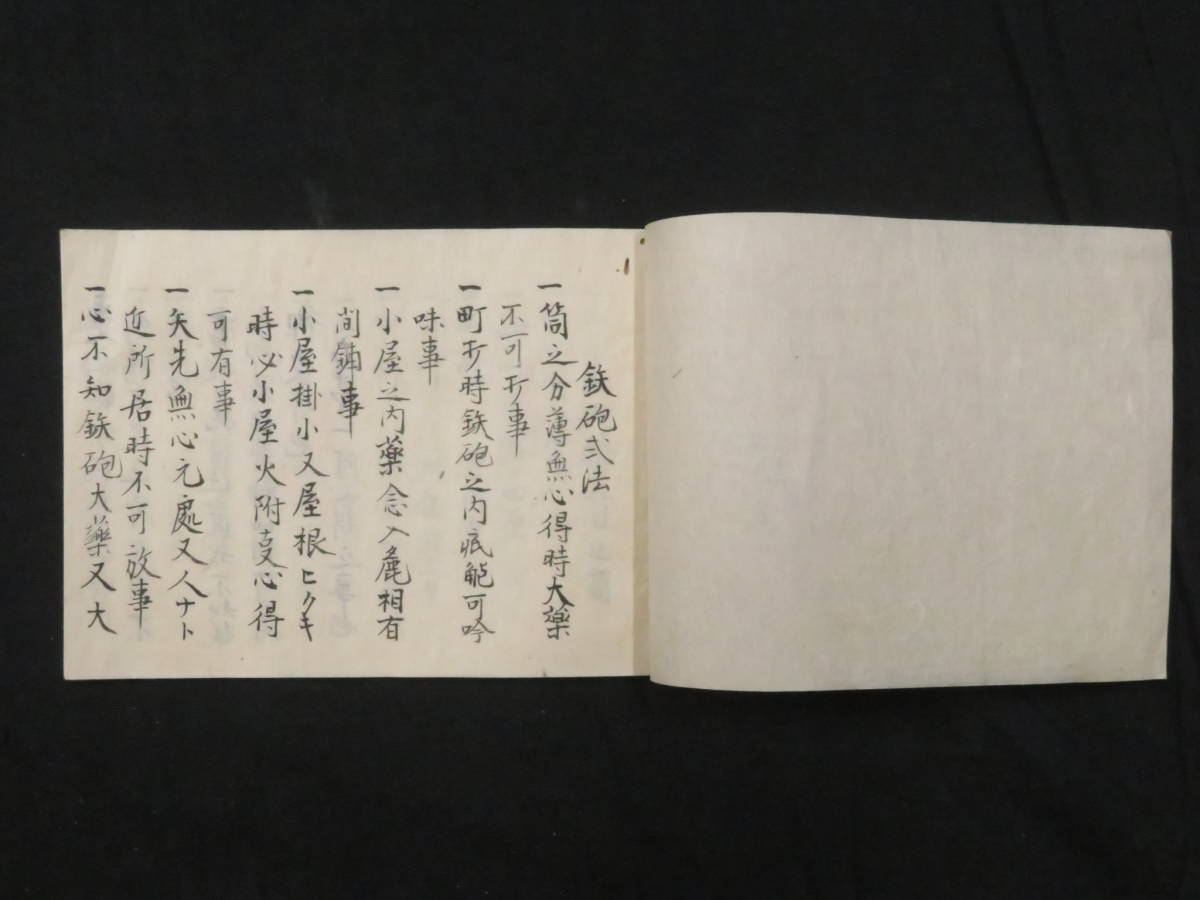 鉄砲弍法
一筒之分薄無心得時大薬
不可打事
一町打時鉄砲之内疵能可吟
味事
一小屋之内藥念入麁相有
間鋪事
一小屋掛小又屋根ヒクキ
時必小屋火附支心得
可有事
一矢先無心元處又人ナト
近所居時不可放事
一心不知鉄砲大藥又大